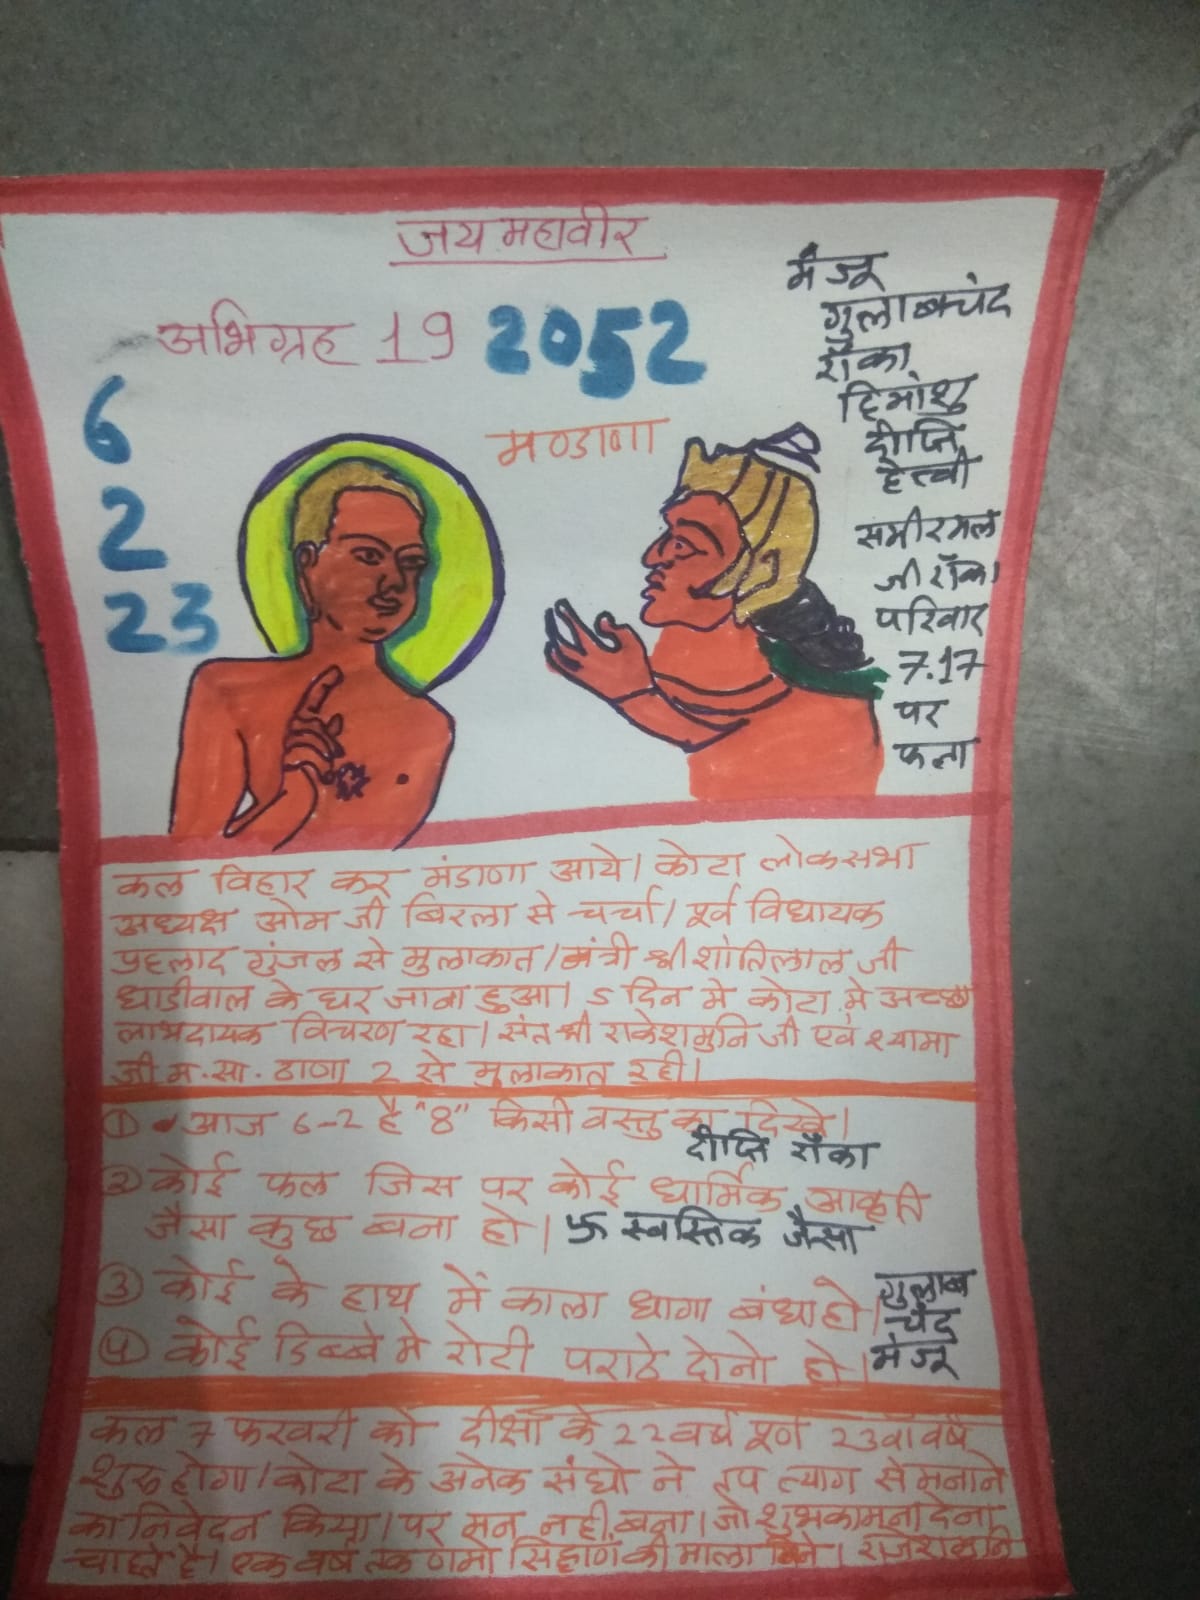 जय महावीर
अभिग्रह 19 2052
6
2
23
मण्डाणा
मंजू
गुलाबचंद
राँका
हिमांशु
दीप्ति
हेत्वी
समीरमल
जी राँका
परिवार
7.17
पर
फला
कल विहार कर मंडाणा आये। कोटा लोकसभा
अध्यक्ष ओम जी बिरला से चर्चा। पूर्व विधायक
प्रहलाद गुंजल से मुलाकात। मंत्री श्री शांतिलाल जी
धाडीवाल के घर जावा हुआ। 5 दिन मे कोटा मे अच्छा
लाभदायक विचरण रहा। संत श्री राकेशमुनि जी एवं श्यामा
जी म.सा. ठाणा 2 से मुलाकात रही।
① आज 6-2 है "8" किसी वस्तु का दिखे।
दीप्ति राँका
② कोई फल जिस पर कोई धार्मिक आकृति
जैसा कुछ बना हो। 卐 स्वस्तिक जैसा
③ कोई के हाथ में काला धागा बंधा हो।
④ कोई डिब्बे मे रोटी पराठे दोनो हो।
गुलाब
चंद
मंजू
कल 7 फरवरी को दीक्षा के 22 वर्ष पूर्ण 23वां वर्ष
शुरू होगा। कोटा के अनेक संघो ने तप त्याग से मनाने
का निवेदन किया। पर मन नही बना। जो शुभकामना देना
चाहते है। एक वर्ष तक णमो सिद्धाणं की माला गिने।